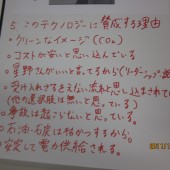 5. このテクノロジーに賛成する理由
・クリーンなイメージ(CO₂)
・コストが安いと思い込んでいる
・星野さんがいいと言ってるから
・受け入れざるをえない流れと思い込まされている
(他の選択肢は無いと思っている)
・事故は起こらないと思っている。
・石油・石炭は枯かつするから。
・安定して電力供給される。